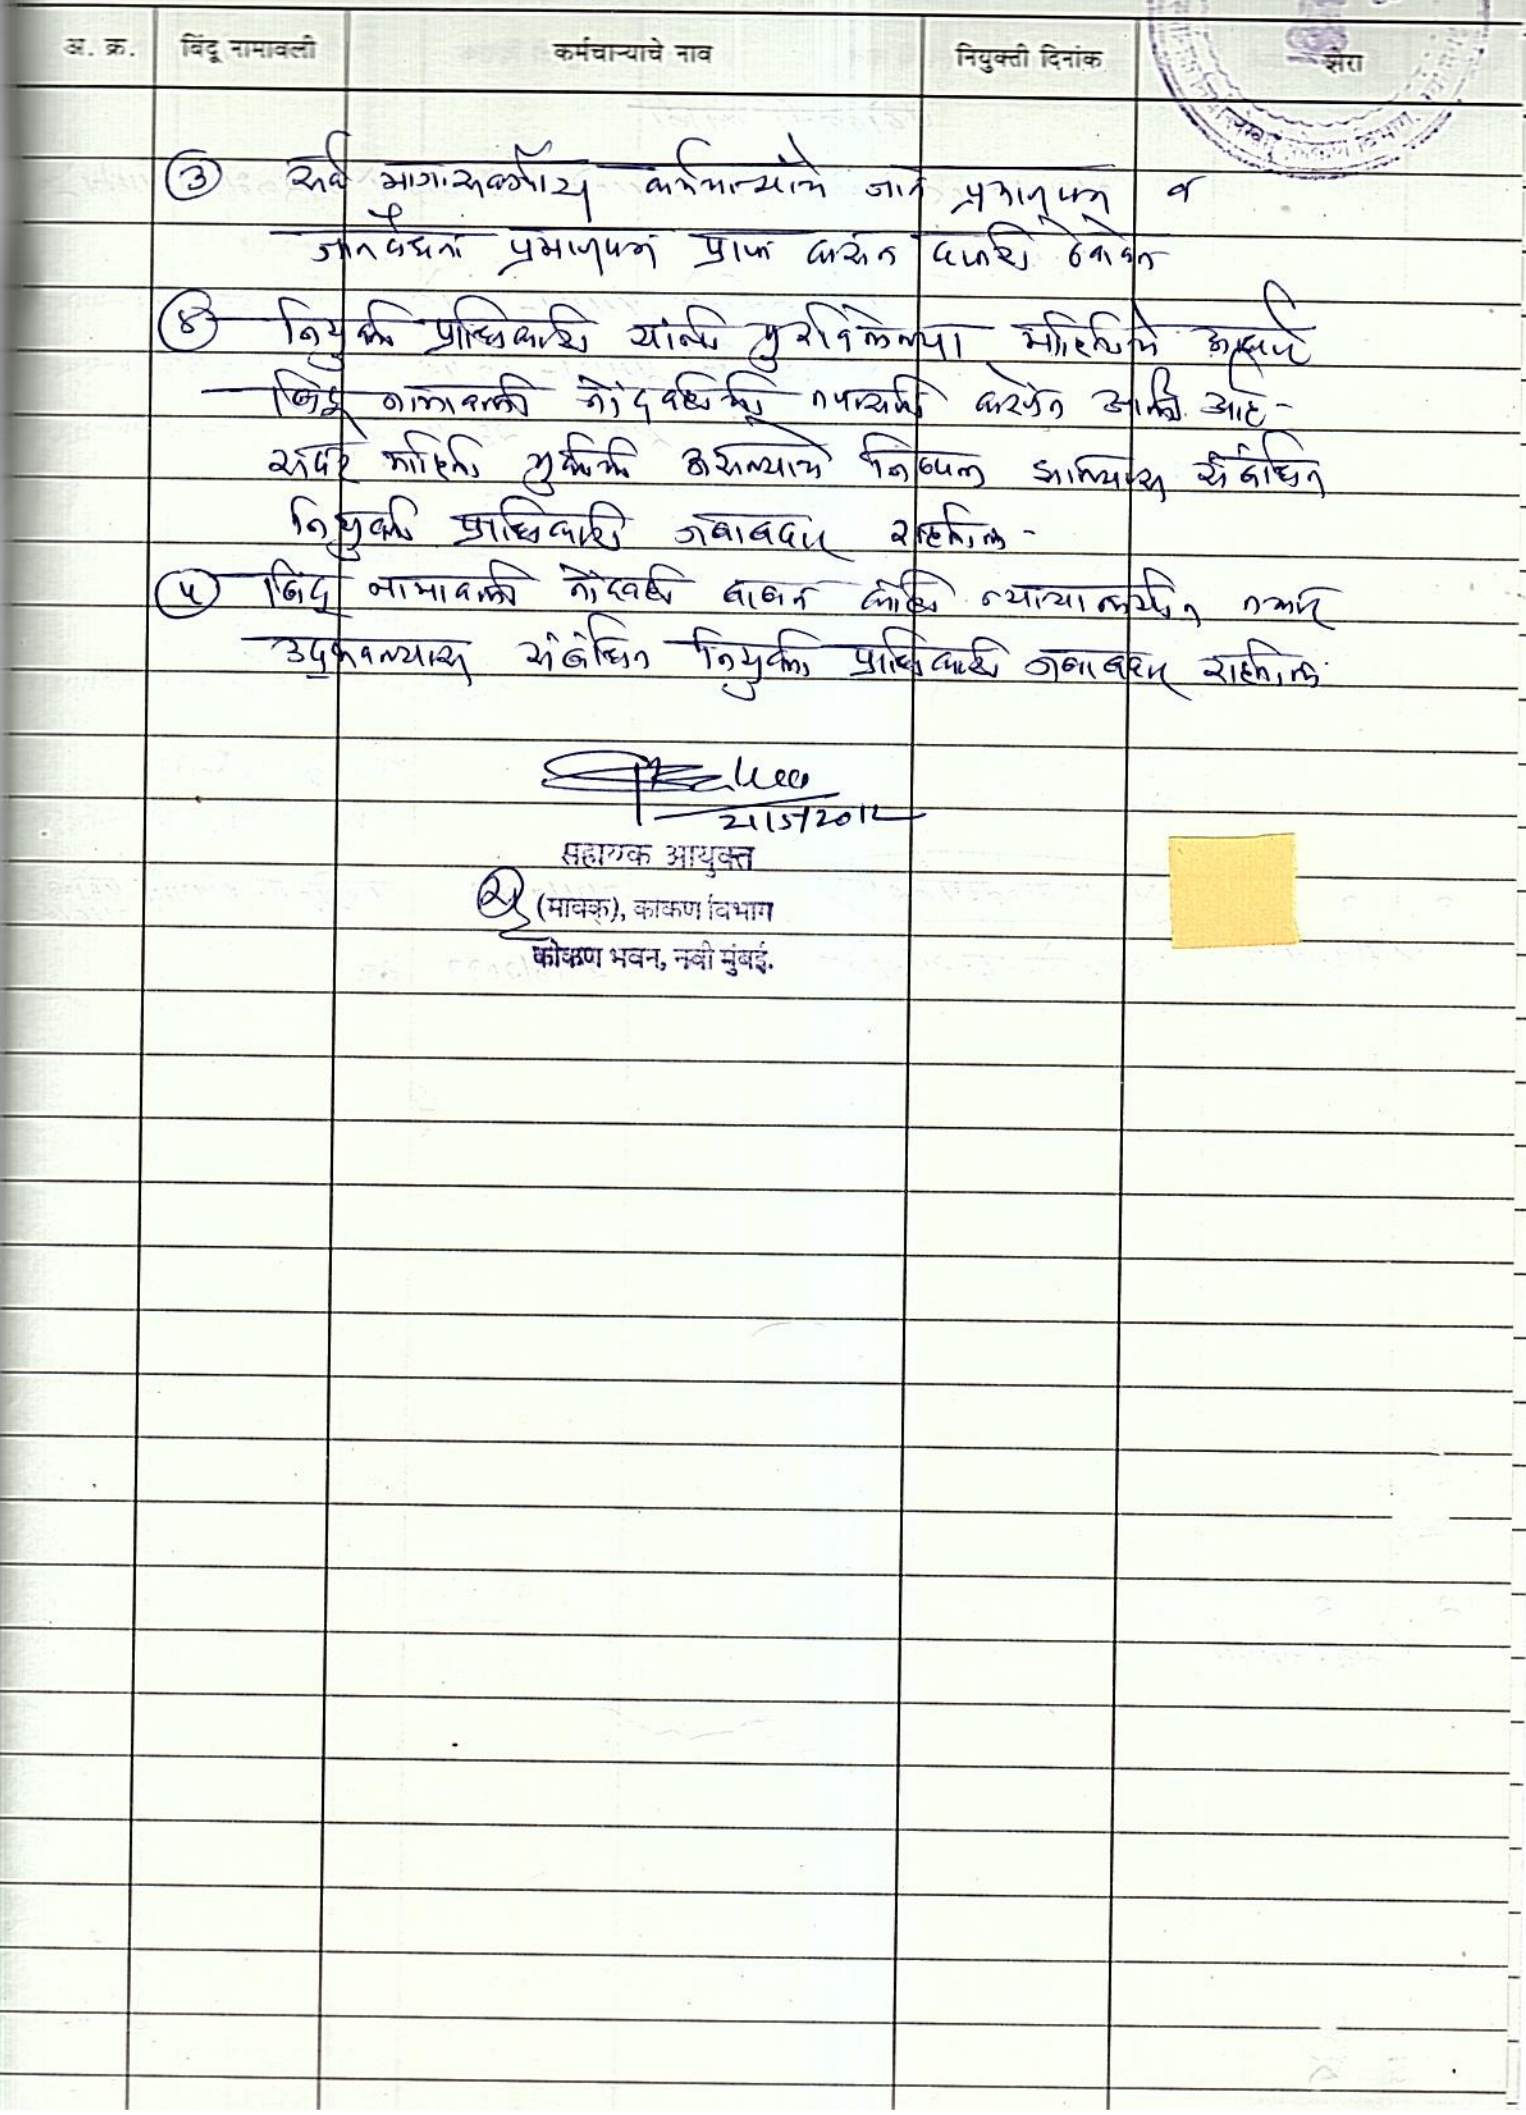 अ. क्र. बिंदू नामावली कर्मचाऱ्याचे नाव नियुक्ती दिनांक शेरा
कोकण विभाग
③ सर्व मागासवर्गीय कर्मचाऱ्यांचे जात प्रमाणपत्र व
जातवैधता प्रमाणपत्र प्राप्त करून दप्तरी ठेवावेत
④ नियुक्ती प्राधिकारी यांनी पुरविलेल्या माहितीचे आधारे
बिंदू नामावली नोंदवहीची तपासणी करण्यात आली आहे-
सदर माहिती चुकीची असल्याचे निष्पन्न झाल्यास संबंधित
नियुक्ती प्राधिकारी जबाबदार राहतील-
⑤ बिंदू नामावली नोंदवही बाबत काही न्यायालयीन तक्रार
उद्भवल्यास संबंधित नियुक्ती प्राधिकारी जबाबदार राहतील.
21/5/2012
सहायक आयुक्त
(मावक), कोकण विभाग
कोकण भवन, नवी मुंबई.